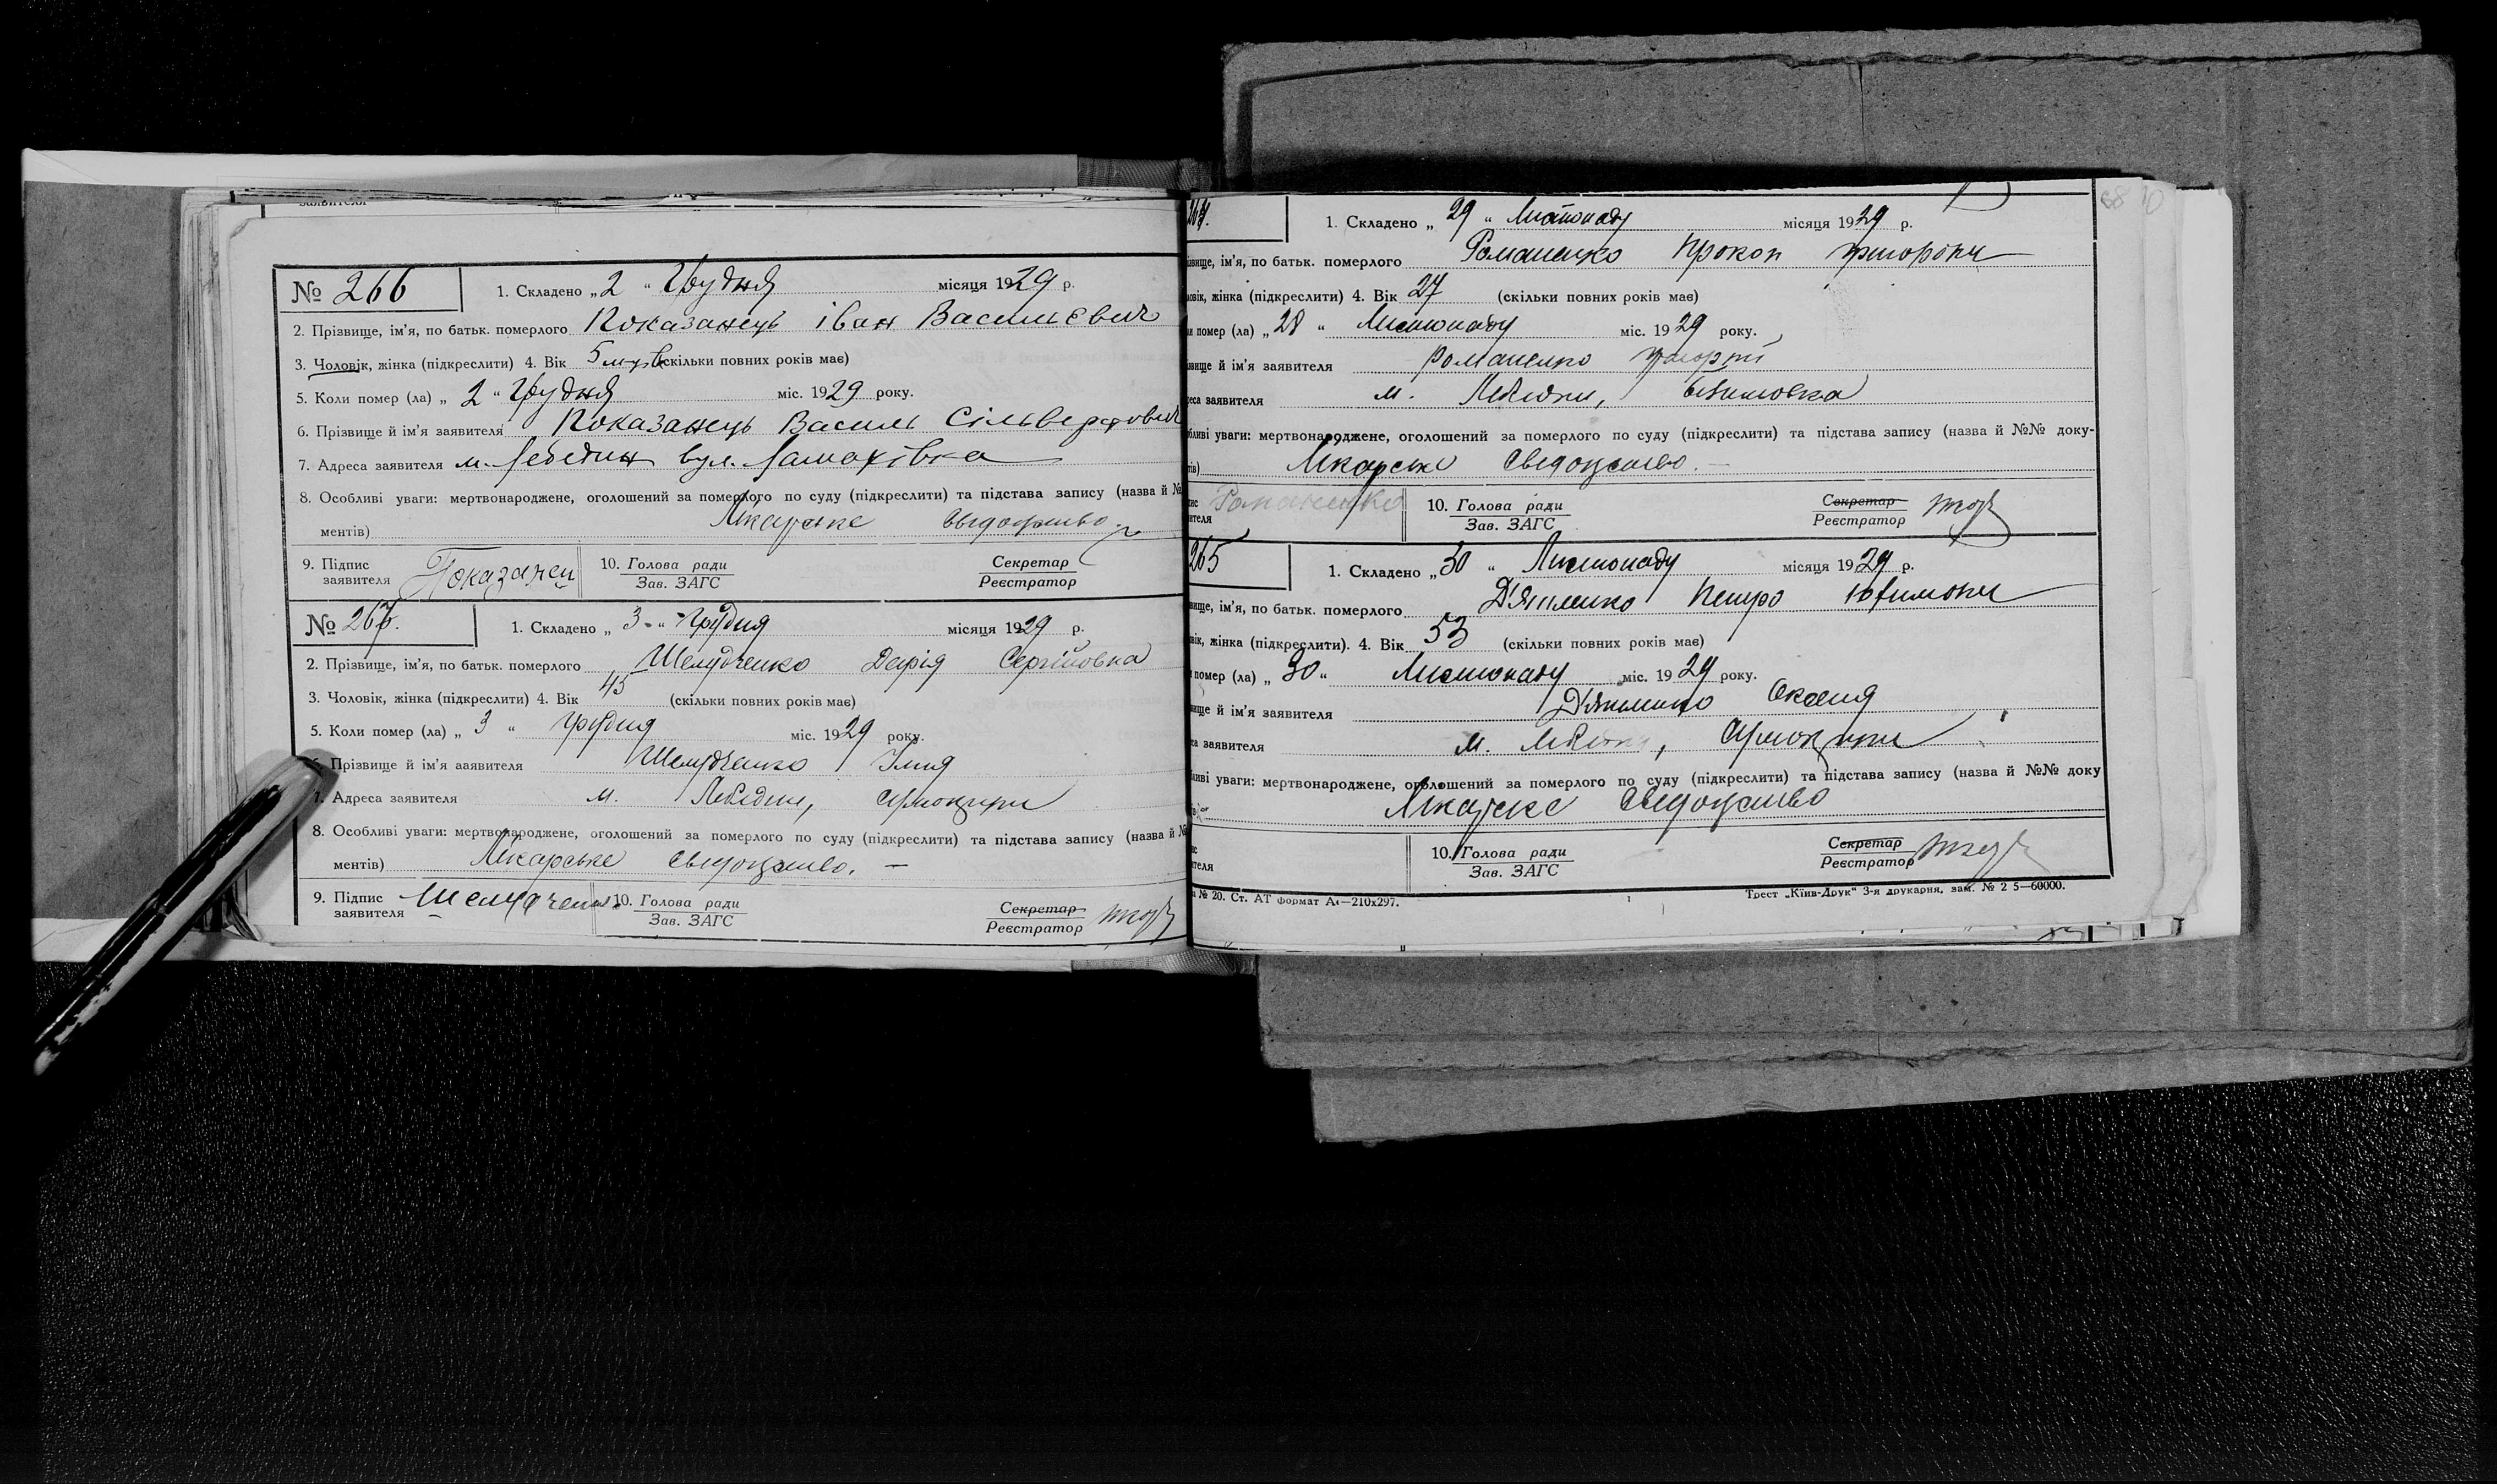 заявителя
№ 266
1. Складено „2“ Грудня місяця 1929 р.
2. Прізвище, ім'я, по батьк. померлого Показанець Іван Васильєвич
3. Чоловік, жінка (підкреслити) 4. Вік 5 (скільки повних років має)
5. Коли помер (ла) „2“ Грудня міс. 1929 року.
6. Прізвище й ім'я заявителя Показанець Василь Сільверстович
7. Адреса заявителя м. Лебедин вул. Ламахівка
8. Особливі уваги: мертвонароджене, оголошений за померлого по суду (підкреслити) та підстава запису (назва й №
ментів) Лікарське свідоцтво
9. Підпис заявителя Показанец
10. Голова ради
Зав. ЗАГС
Секретар
Реєстратор
№ 267.
1. Складено „3“ Грудня місяця 1929 р.
2. Прізвище, ім'я, по батьк. померлого Шелудченко Дарія Сергіївна
3. Чоловік, жінка (підкреслити) 4. Вік 45 (скільки повних років має)
5. Коли помер (ла) „3“ грудня міс. 1929 року.
6. Прізвище й ім'я заявителя Шелудченко Ілля
7. Адреса заявителя м. Лебедин,
8. Особливі уваги: мертвонароджене, оголошений за померлого по суду (підкреслити) та підстава запису (назва й №
ментів) Лікарське свідоцтво. —
9. Підпис заявителя
10. Голова ради
Зав. ЗАГС
Секретар
Реєстратор
264.
1. Складено „29“ Листопаду місяця 1929 р.
звище, ім'я, по батьк. померлого Романенко Прокоп
ловік, жінка (підкреслити) 4. Вік 27 (скільки повних років має)
и помер (ла) „28“ Листопаду міс. 1929 року.
звище й ім'я заявителя Романенко
реса заявителя м. Лебедин,
бливі уваги: мертвонароджене, оголошений за померлого по суду (підкреслити) та підстава запису (назва й №№ доку-
тів) Лікарське свідоцтво. —
пис
ителя Романенко
10. Голова ради
Зав. ЗАГС
Секретар
Реєстратор
265
1. Складено „30“ Листопаду місяця 1929 р.
вище, ім'я, по батьк. померлого Дяченко Петро
вік, жінка (підкреслити). 4. Вік 53 (скільки повних років має)
помер (ла) „30“ Листопаду міс. 1929 року.
вище й ім'я заявителя Дяченко
са заявителя м. Лебедин,
ливі уваги: мертвонароджене, оголошений за померлого по суду (підкреслити) та підстава запису (назва й №№ доку
Лікарське свідоцтво
10. Голова ради
Зав. ЗАГС
Секретар
Реєстратор
№ 20. Ст. АТ формат А4—210х297.
Трест „Київ-Друк“ 3-я друкарня, зам. № 2 5—60000.